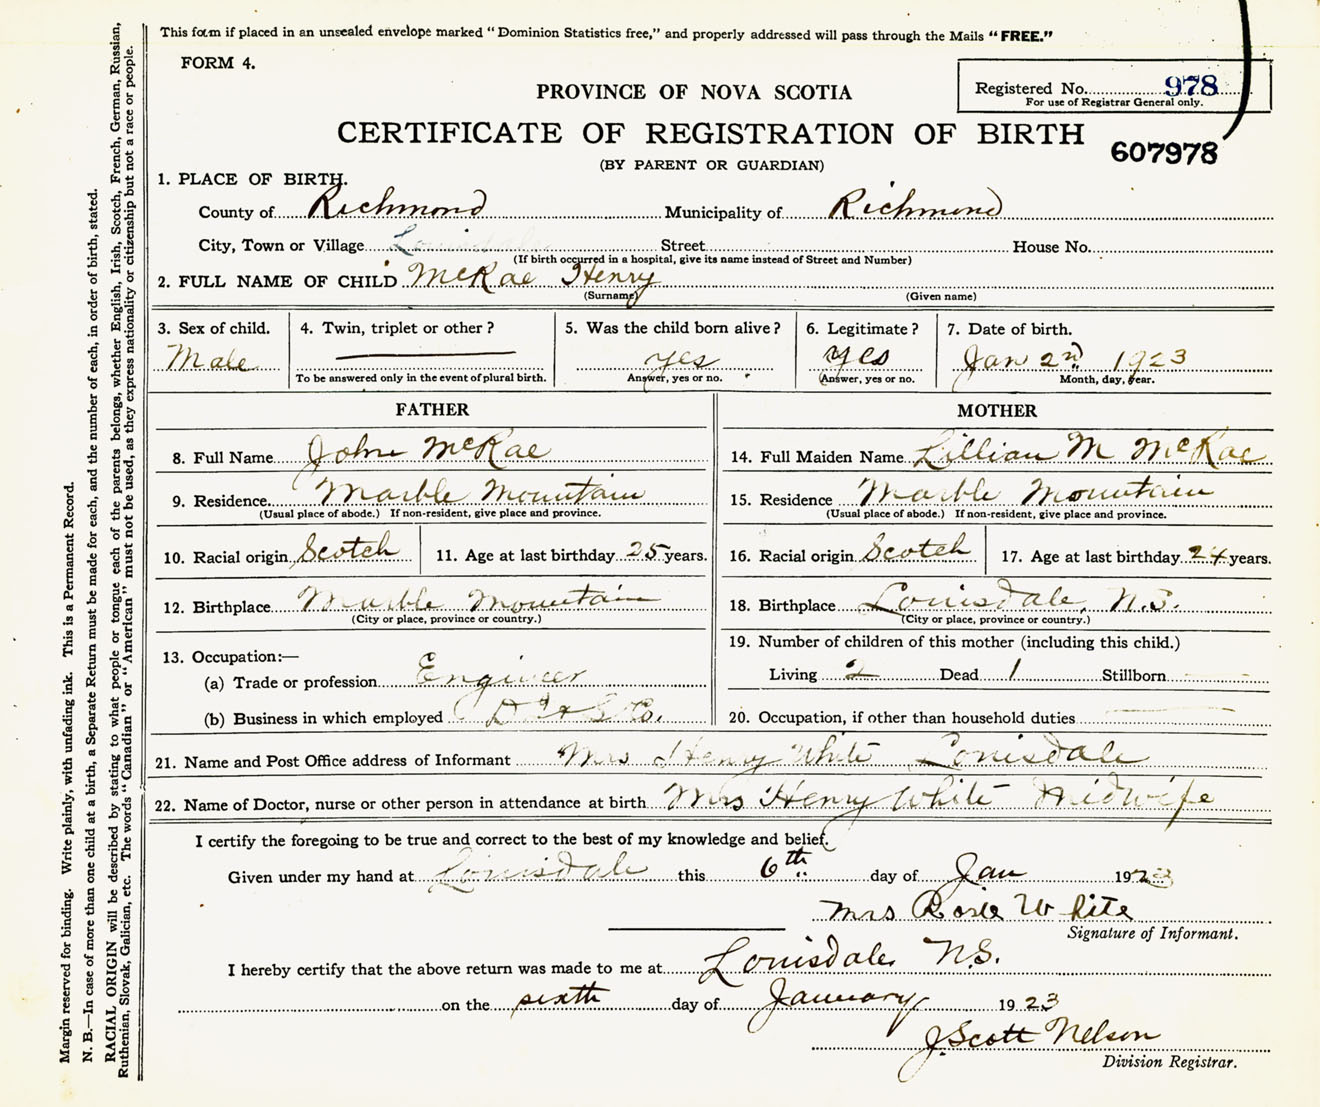 This form if placed in an unsealed envelope marked "Dominion Statistics free," and properly addressed will pass through the Mails "FREE."
FORM 4.
Registered No. 978
For use of Registrar General only.
PROVINCE OF NOVA SCOTIA
CERTIFICATE OF REGISTRATION OF BIRTH
607978
(BY PARENT OR GUARDIAN)
1. PLACE OF BIRTH.
County of Richmond Municipality of Richmond
City, Town or Village Louisdale Street House No.
(If birth occurred in a hospital, give its name instead of Street and Number)
2. FULL NAME OF CHILD McRae Henry
(Surname) (Given name)
3. Sex of child. 4. Twin, triplet or other? 5. Was the child born alive? 6. Legitimate? 7. Date of birth.
Male yes yes Jan 2nd 1923
To be answered only in the event of plural birth. Answer, yes or no. Answer, yes or no. Month, day, year.
FATHER
8. Full Name John McRae
9. Residence Marble Mountain
(Usual place of abode.) If non-resident, give place and province.
10. Racial origin Scotch 11. Age at last birthday 25 years.
12. Birthplace Marble Mountain
(City or place, province or country.)
13. Occupation:—
(a) Trade or profession Engineer
(b) Business in which employed Co.
MOTHER
14. Full Maiden Name Lillian M McRae
15. Residence Marble Mountain
(Usual place of abode.) If non-resident, give place and province.
16. Racial origin Scotch 17. Age at last birthday 24 years.
18. Birthplace Louisdale, N.S.
(City or place, province or country.)
19. Number of children of this mother (including this child.)
Living 2 Dead 1 Stillborn
20. Occupation, if other than household duties
21. Name and Post Office address of Informant Mrs Henry White Louisdale
22. Name of Doctor, nurse or other person in attendance at birth Mrs Henry White Midwife
I certify the foregoing to be true and correct to the best of my knowledge and belief.
Given under my hand at Louisdale this 6th day of Jan 1923
Mrs Rosie White
Signature of Informant.
I hereby certify that the above return was made to me at Louisdale N.S.
on the sixth day of January 1923
J. Scott Nelson
Division Registrar.
Margin reserved for binding. Write plainly, with unfading ink. This is a Permanent Record.
N. B.—In case of more than one child at a birth, a Separate Return must be made for each, and the number of each, in order of birth, stated.
RACIAL ORIGIN will be described by stating to what people or tongue each of the parents belongs, whether English, Irish, Scotch, French, German, Russian,
Ruthenian, Slovak, Galician, etc. The words "Canadian" or "American" must not be used, as they express nationality or citizenship but not a race or people.